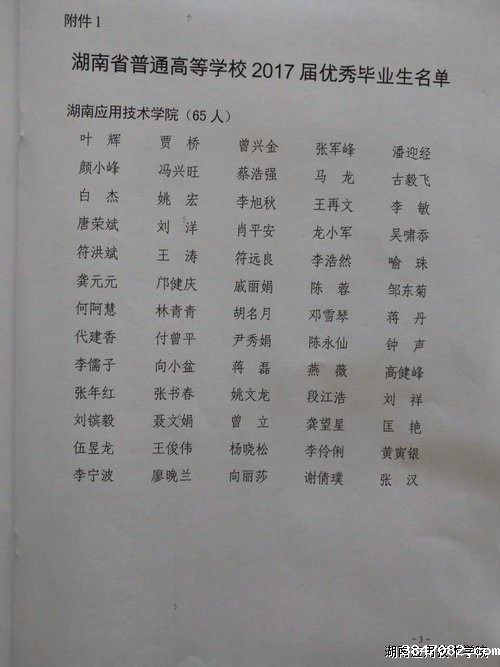 附件1
湖南省普通高等学校2017届优秀毕业生名单
湖南应用技术学院（65人）
叶 辉 贾 桥 曾兴金 张军峰 潘迎经
颜小峰 冯兴旺 蔡浩强 马 龙 古毅飞
白 杰 姚 宏 李旭秋 王再文 李 敏
唐荣斌 刘 洋 肖平安 龙小军 吴啸忝
符洪斌 王 涛 符远良 李浩然 喻 珠
龚元元 邝健庆 戚丽娟 陈 蓉 邹东菊
何阿慧 林青青 胡名月 邓雪琴 蒋 丹
代建香 付曾平 尹秀娟 陈永仙 钟 声
李儒子 向小盆 蒋 磊 燕 薇 高健峰
张年红 张书春 姚文龙 段江浩 刘 祥
刘镔毅 聂文娟 曾 立 龚望星 匡 艳
伍昱龙 王俊伟 杨晓松 李伶俐 黄寅银
李宁波 廖晚兰 向丽莎 谢倩璞 张 汉
-3-
湖南应用技术学院